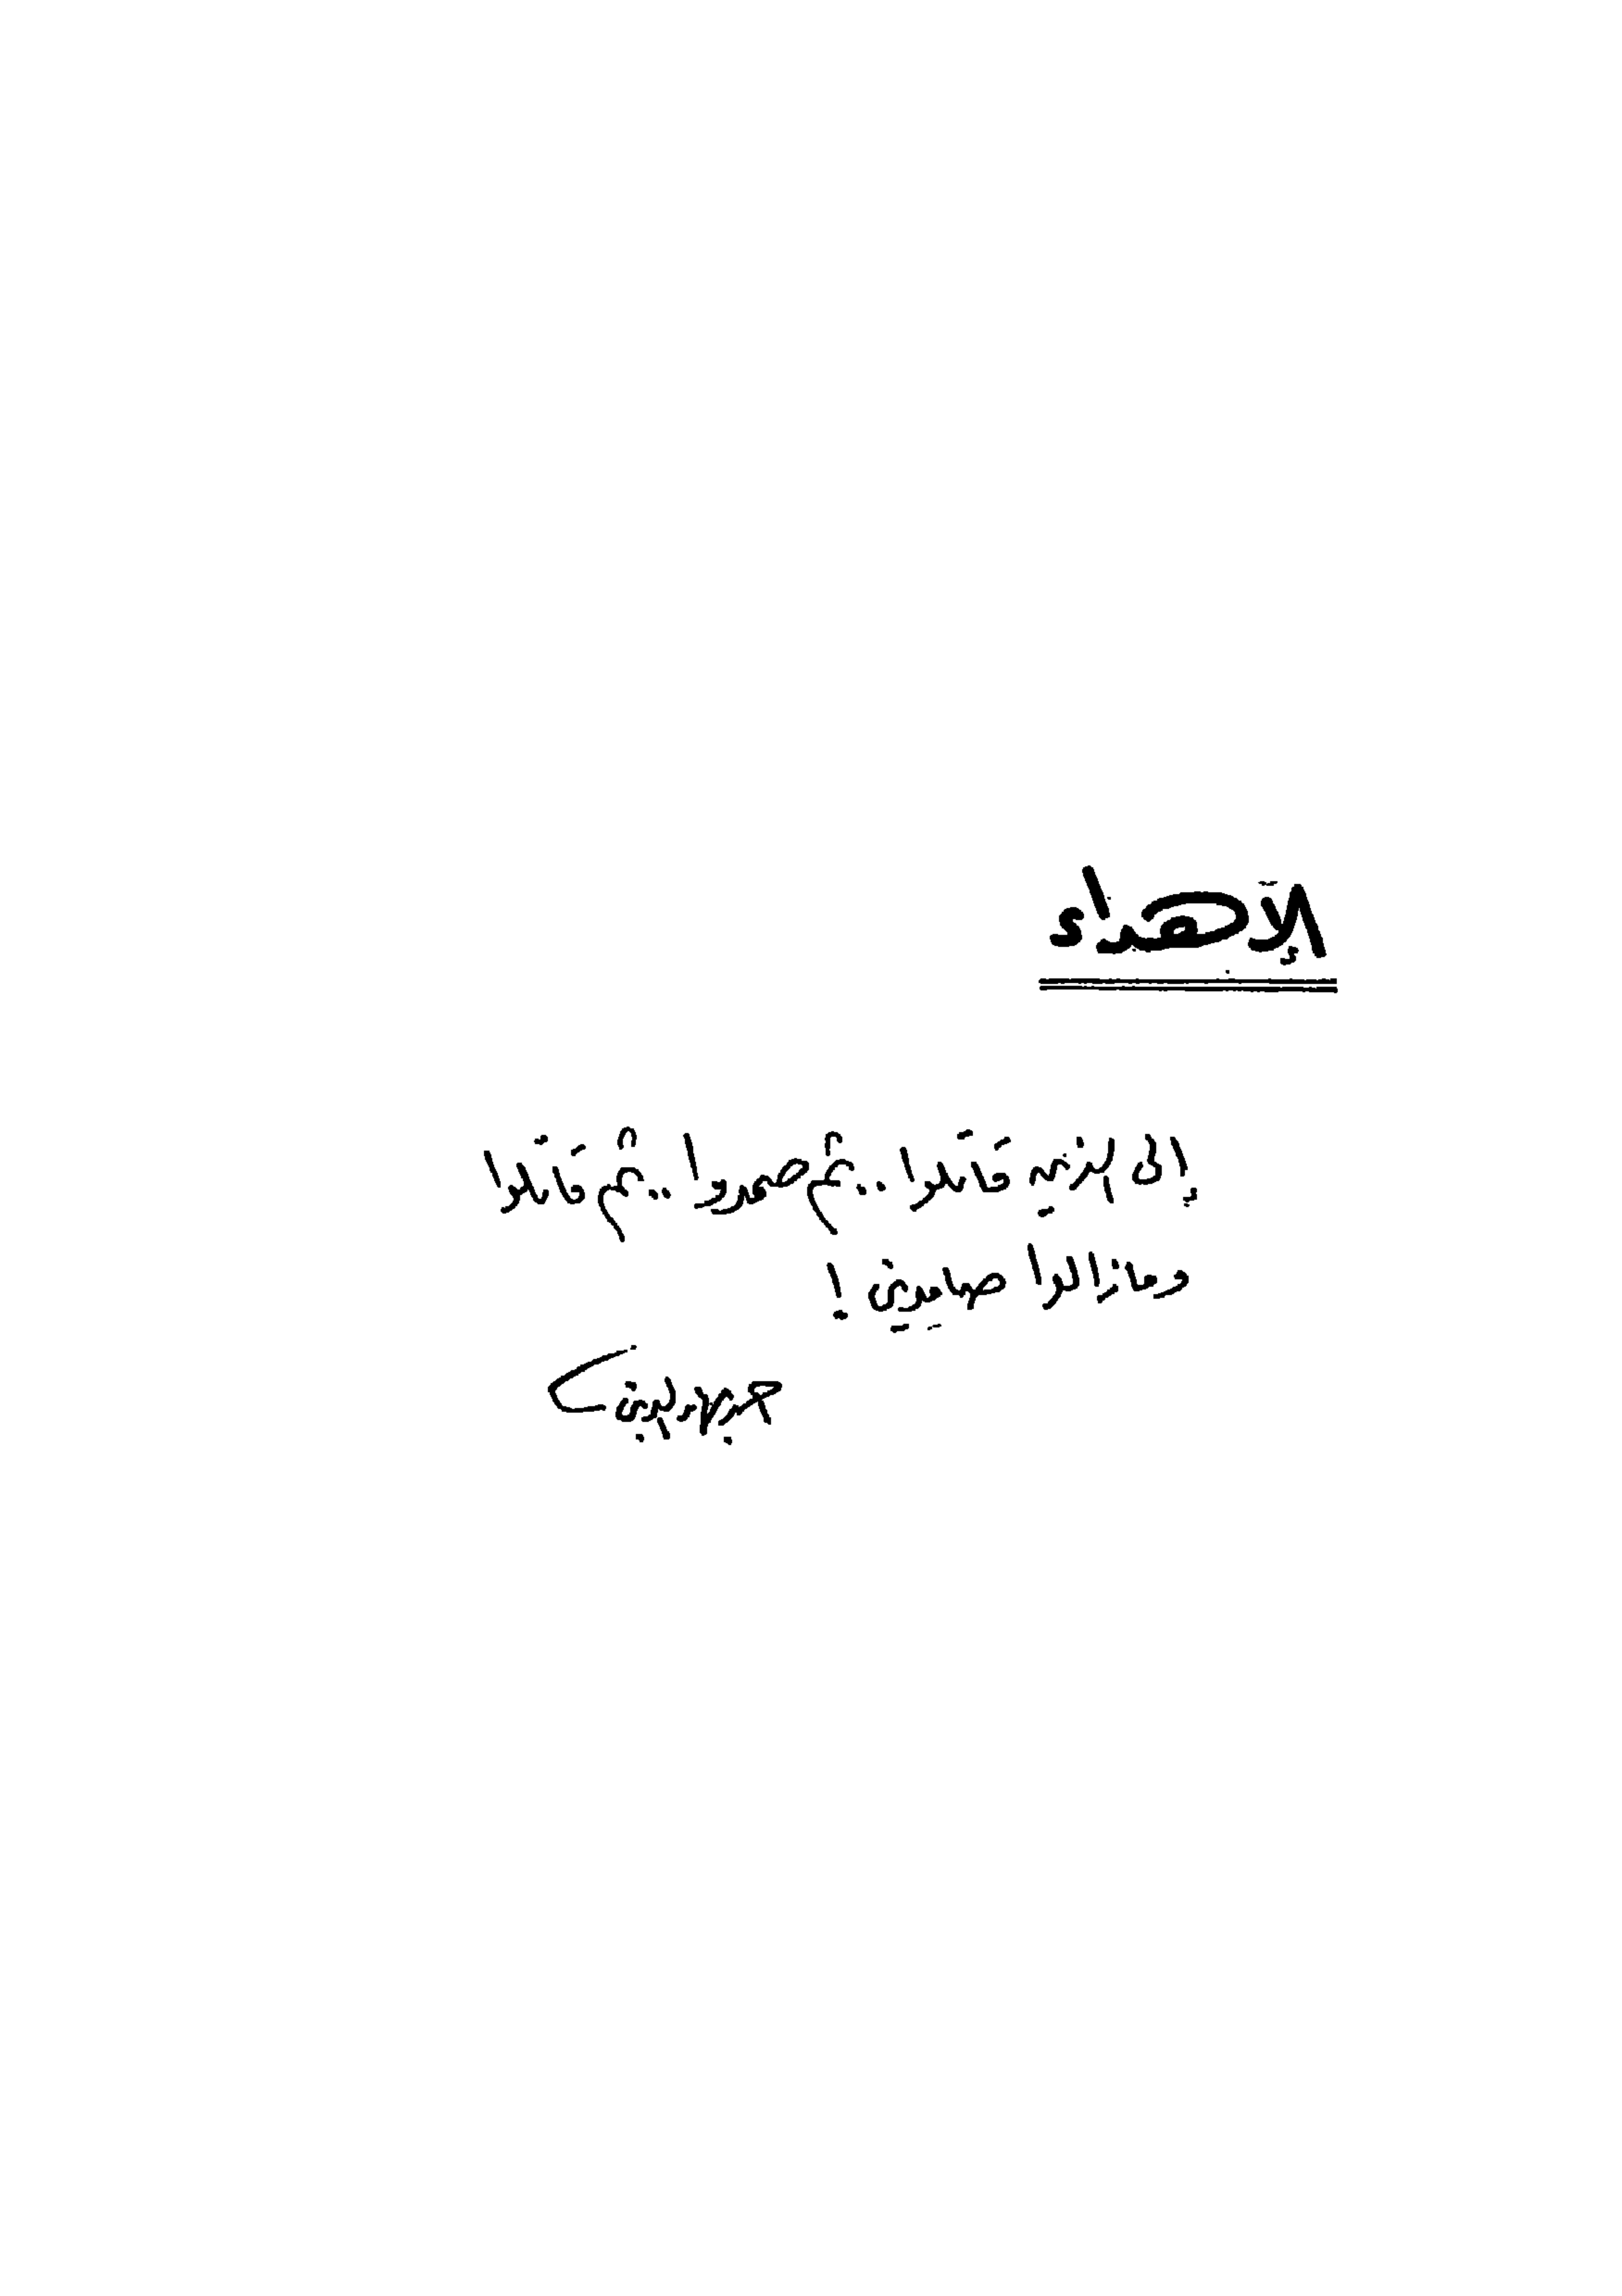 الإهداء
إلى الذين قاتلوا .. ثم صمدوا .. ثم قاتلوا
ومازالوا صامدين !